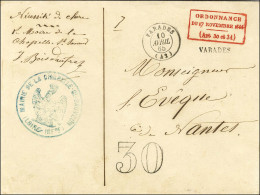 Nécessité de clore
Le Maire de la
Chapelle St
MAIRIE DE LA CHAPELLE
VARADES
10
AVRIL
55
(42)
ORDONNANCE
DU 17 NOVEMBRE 1844
(Art. 30 et 31)
VARADES
Monseigneur
l'Evêque
de Nantes
30